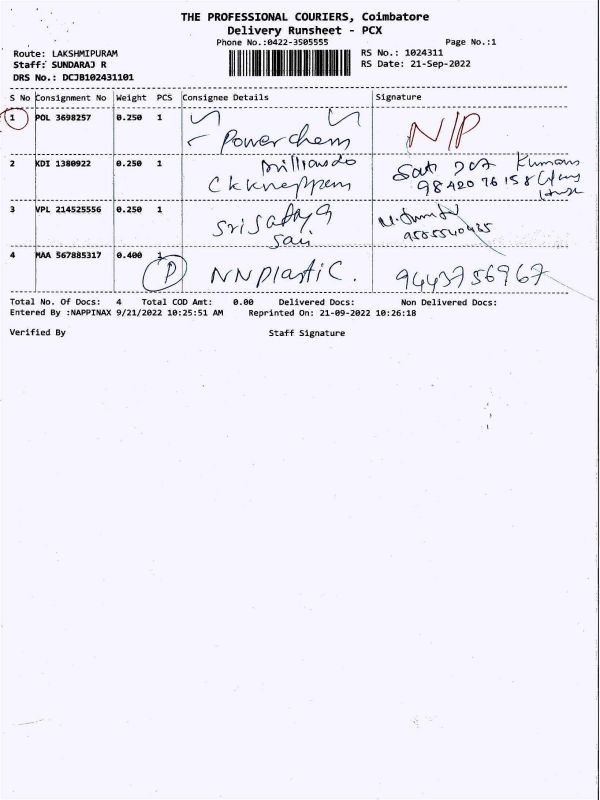 THE PROFESSIONAL COURIERS, Coimbatore
Delivery Runsheet - PCX
Phone No.:0422-3505555 Page No.:1
Route: LAKSHMIPURAM RS No.: 1024311
Staff: SUNDARAJ R RS Date: 21-Sep-2022
DRS No.: DCJB102431101
S No Consignment No Weight PCS Consignee Details Signature
1 POL 3698257 0.250 1 Powerchem N/P
2 KDI 1380922 0.250 1
98420 76158
3 VPL 214525556 0.250 1 Sri Sathya
Sai
4 MAA 567885317 0.400 1 P NN Plastic. 9443756967
Total No. Of Docs: 4 Total COD Amt: 0.00 Delivered Docs: Non Delivered Docs:
Entered By :NAPPINAX 9/21/2022 10:25:51 AM Reprinted On: 21-09-2022 10:26:18
Verified By Staff Signature